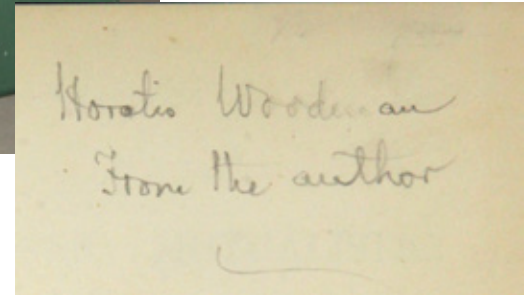 Horatio Woodman
From the author